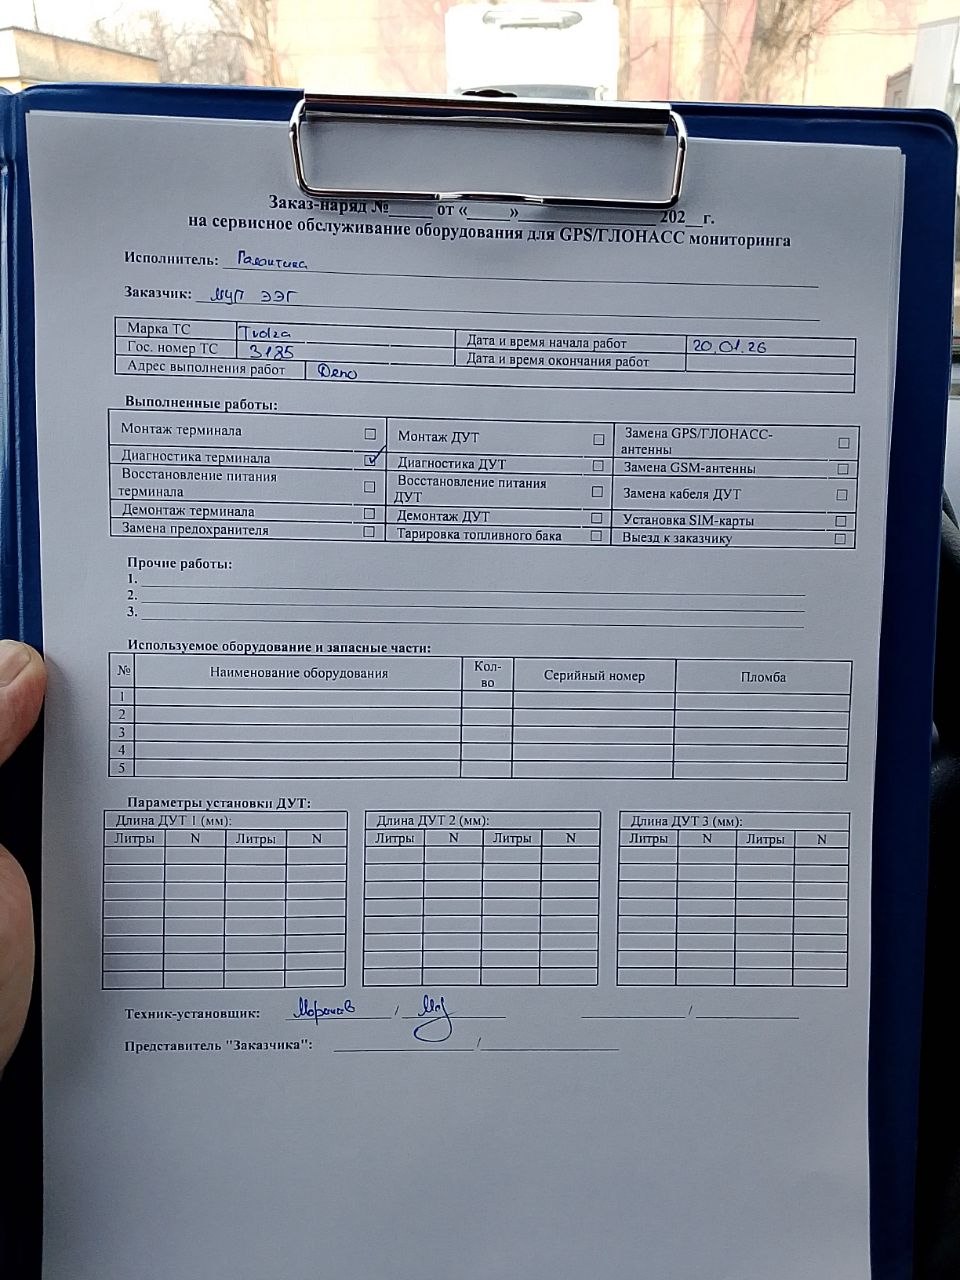 Заказ-наряд №_____ от «_____» ________________ 202__г.
на сервисное обслуживание оборудования для GPS/ГЛОНАСС мониторинга
Исполнитель: Галактика
Заказчик: МУП ЭЭГ
Марка ТС Tvolza Дата и время начала работ 20.01.26
Гос. номер ТС 3185 Дата и время окончания работ
Адрес выполнения работ Депо
Выполненные работы:
Монтаж терминала ☐ Монтаж ДУТ ☐ Замена GPS/ГЛОНАСС-
антенны ☐
Диагностика терминала ☑ Диагностика ДУТ ☐ Замена GSM-антенны ☐
Восстановление питания
терминала ☐ Восстановление питания
ДУТ ☐ Замена кабеля ДУТ ☐
Демонтаж терминала ☐ Демонтаж ДУТ ☐ Установка SIM-карты ☐
Замена предохранителя ☐ Тарировка топливного бака ☐ Выезд к заказчику ☐
Прочие работы:
1.
2.
3.
Используемое оборудование и запасные части:
№ Наименование оборудования Кол-
во Серийный номер Пломба
1
2
3
4
5
Параметры установки ДУТ:
Длина ДУТ 1 (мм): Длина ДУТ 2 (мм): Длина ДУТ 3 (мм):
Литры N Литры N Литры N Литры N Литры N Литры N
Техник-установщик: / /
Представитель "Заказчика": /